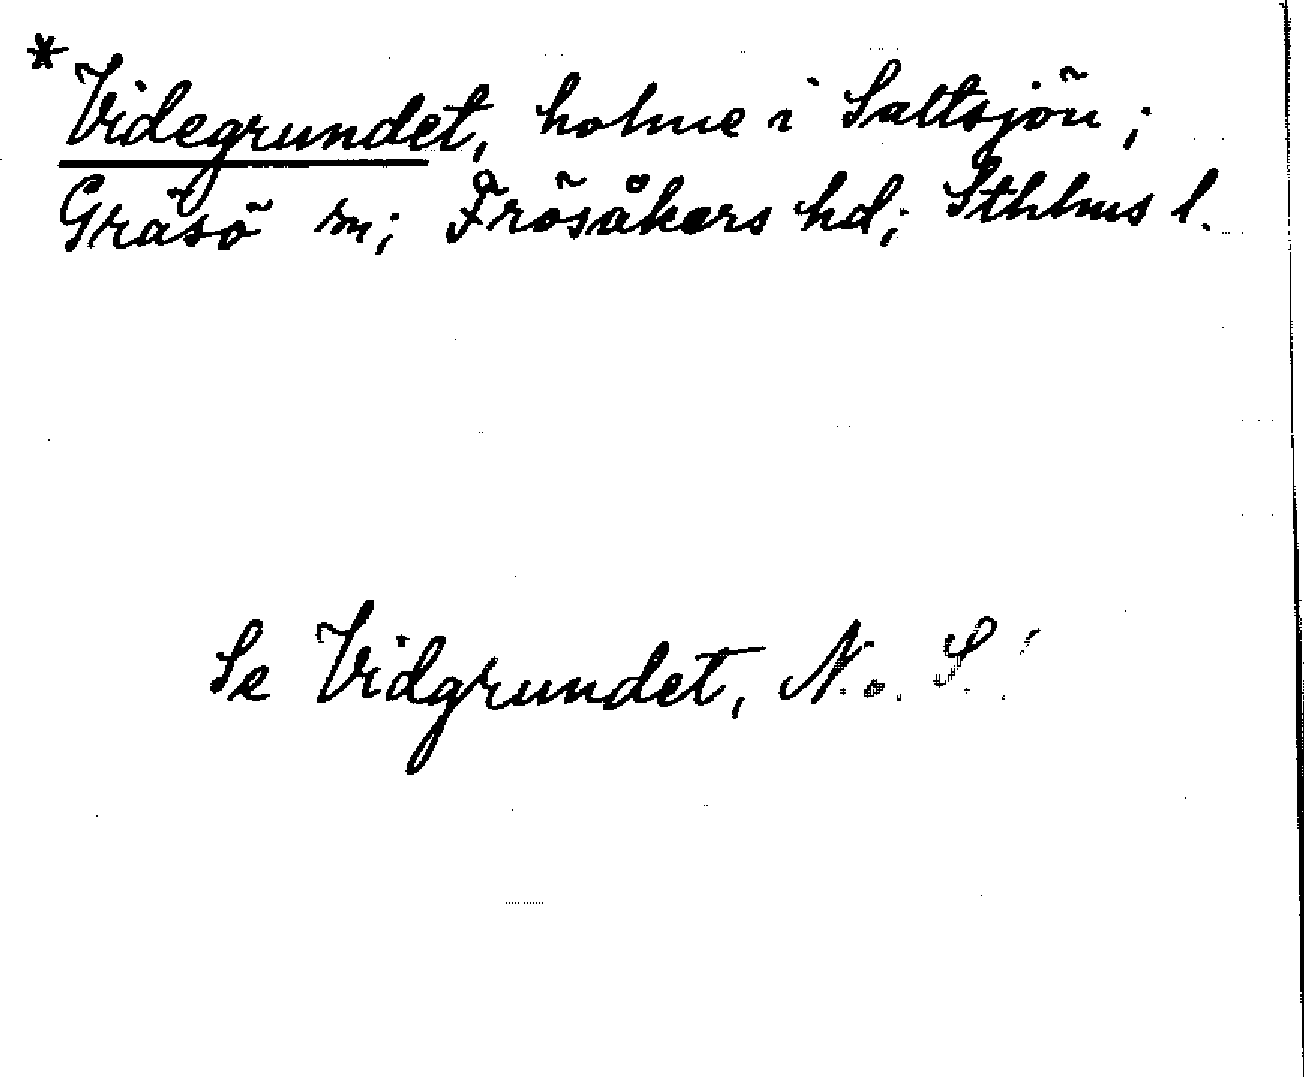 *Videgrundet, holme i Saltsjön;
Gräsö sn; Frösåkers hd; Sthlms l.
Se Vidgrundet, N. o. S.!